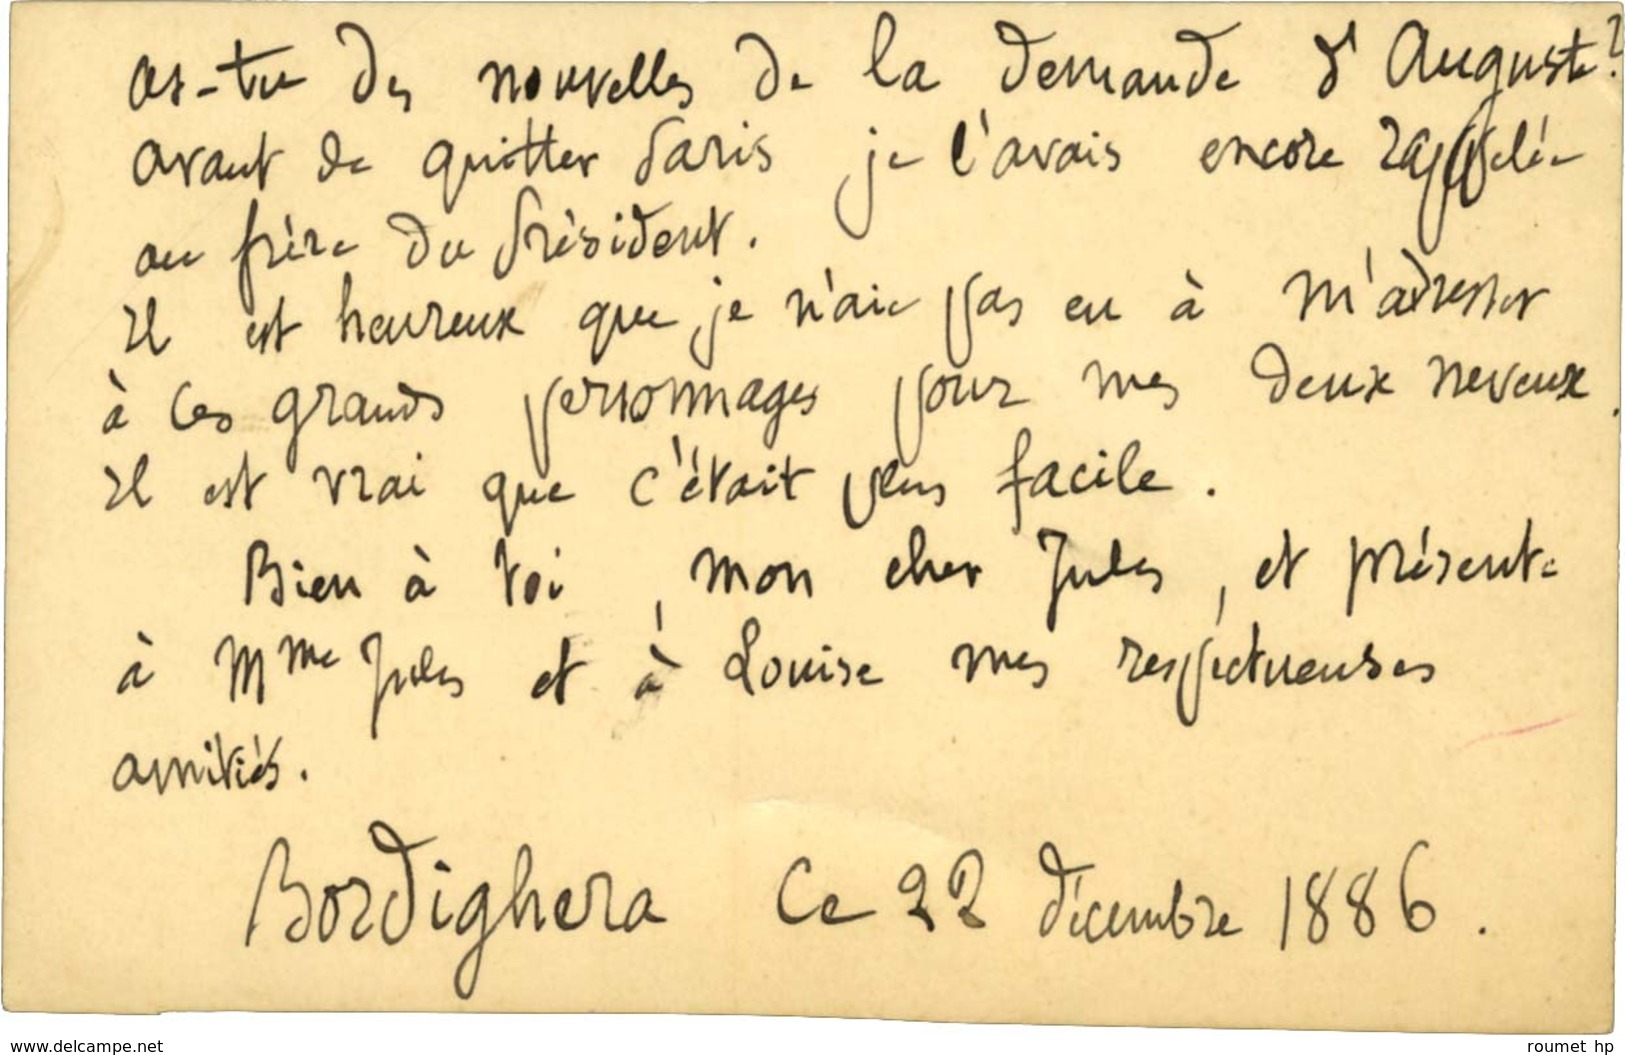 as-tu des nouvelles de la demande d'Auguste?
avant de quitter Paris je l'avais encore rappelée
au frère du Président.
Il est heureux que je n'aie pas eu à m'adresser
à ces grands personnages pour mes deux neveux.
Il est vrai que c'était plus facile.
Bien à toi, mon cher Jules, et présente
à Mme Jules et à Louise mes respectueuses
amitiés.
Bordighera Ce 22 décembre 1886.
www.delcampe.net
roumet hp